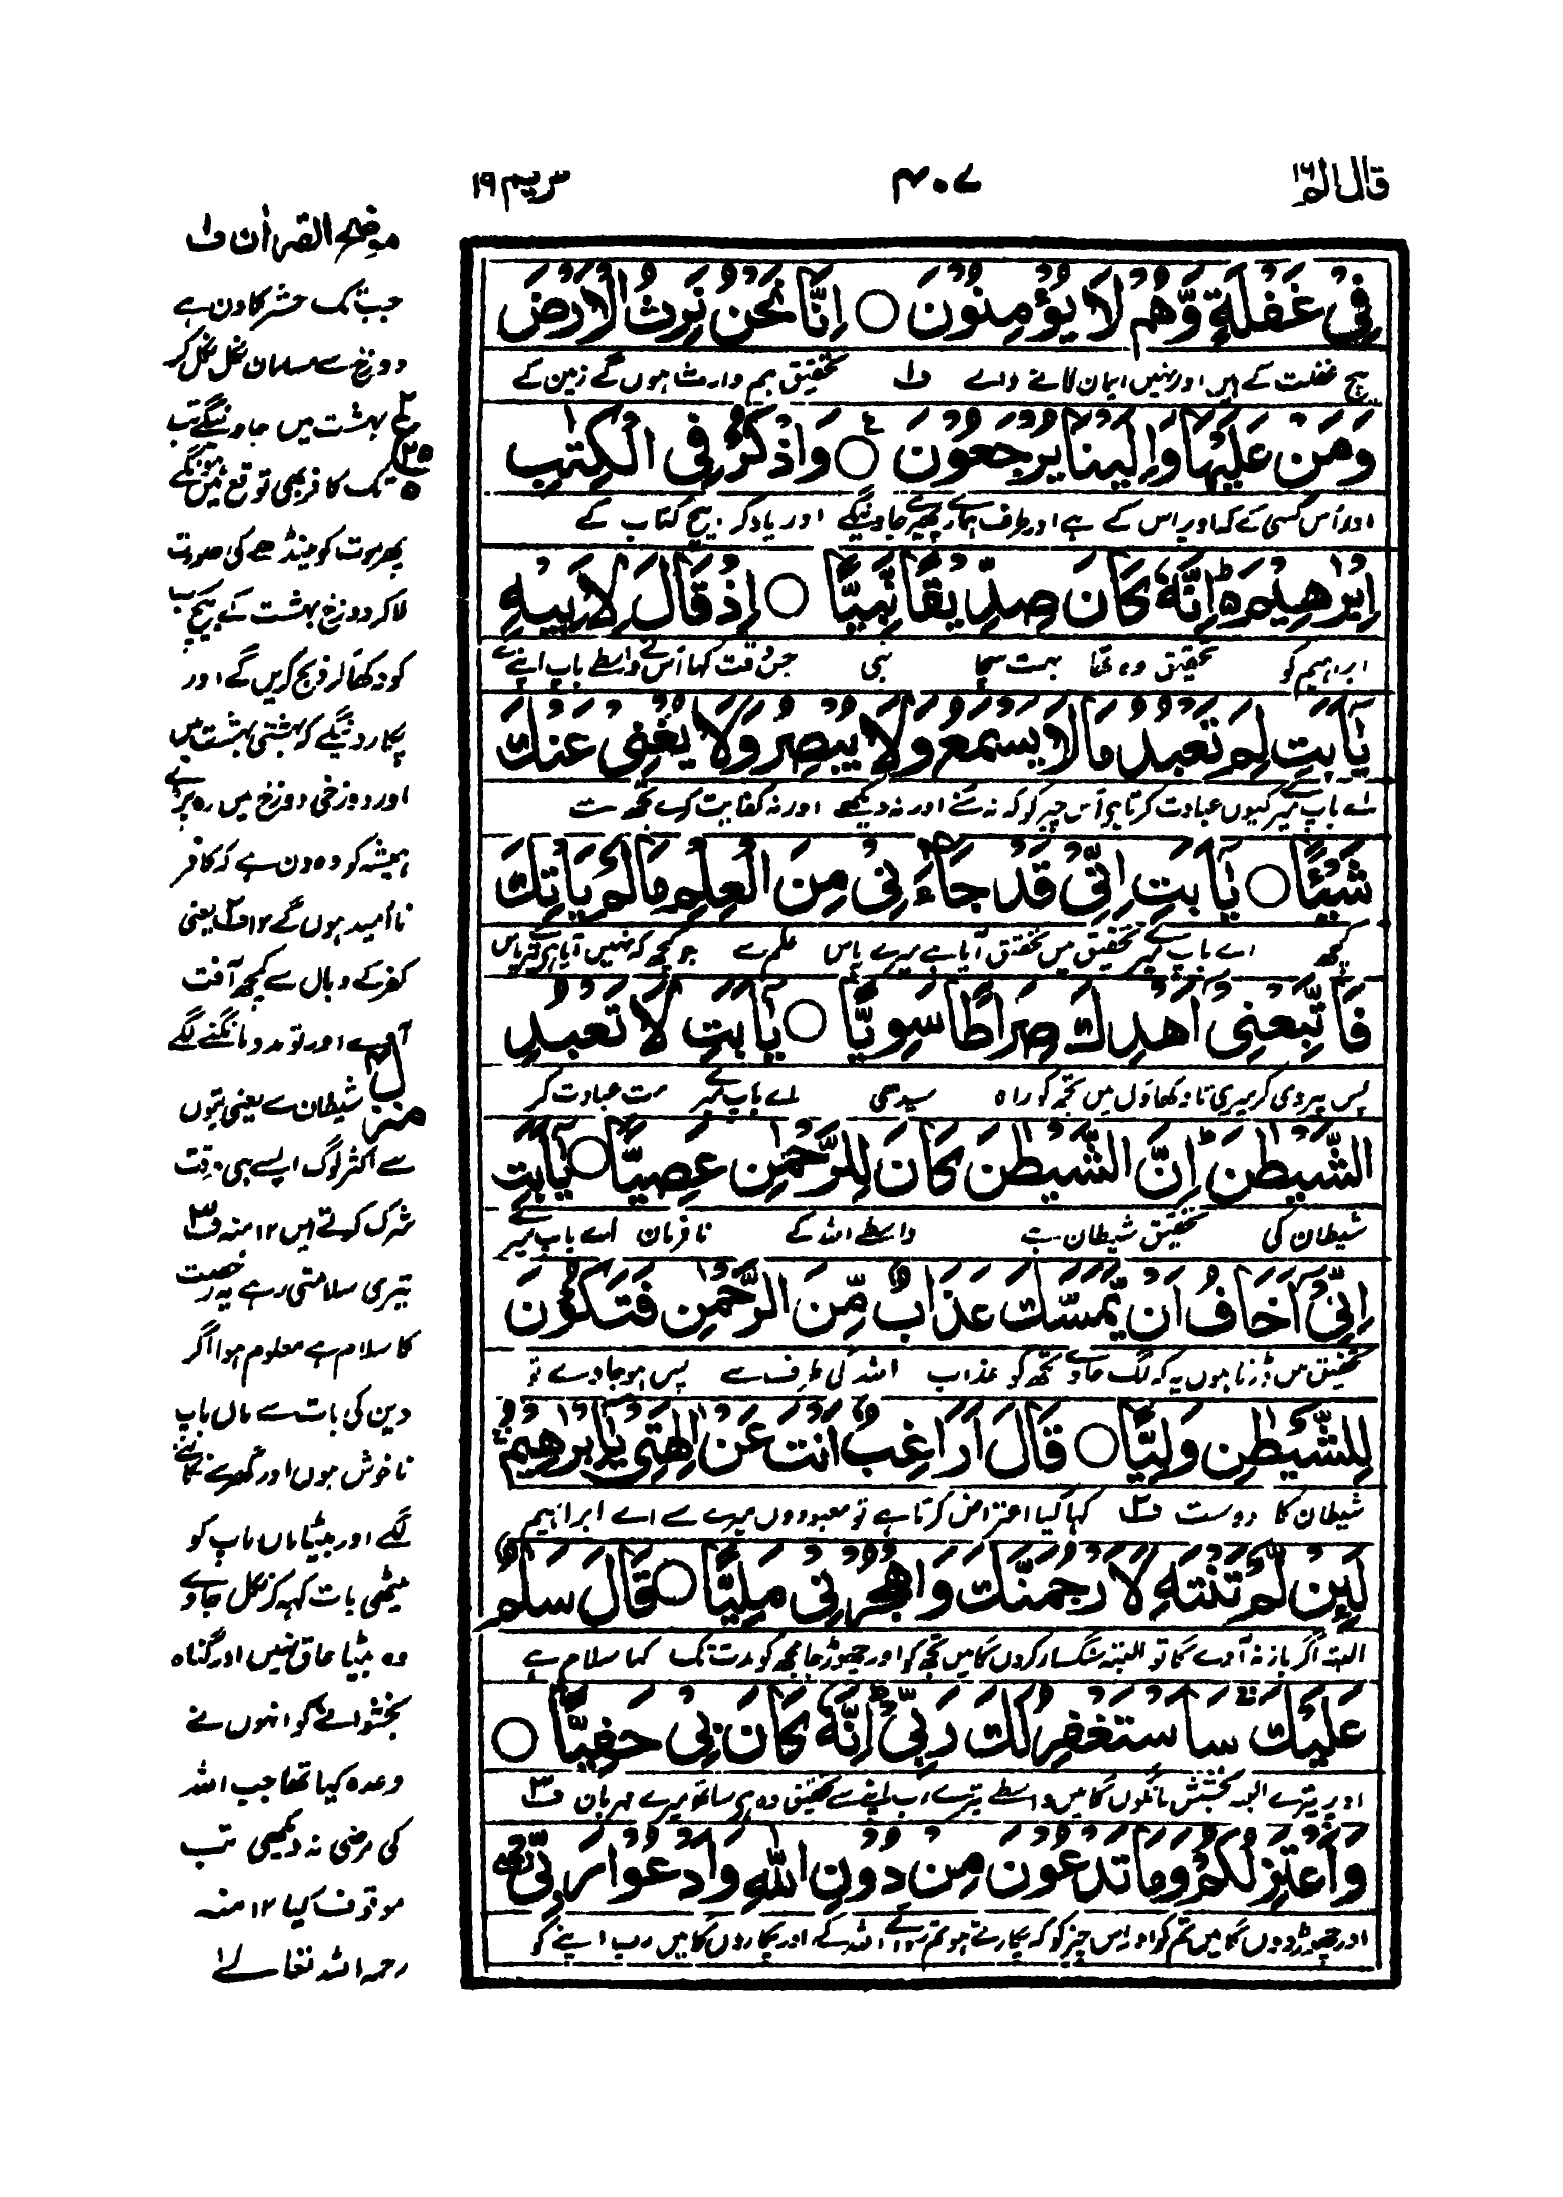 قال الم ١٦
۴۰۷
مریم ١٩
فِیْ غَفْلَةٍ وَّهُمْ لَا یُؤْمِنُوْنَ ○ اِنَّا نَحْنُ نَرِثُ الْاَرْضَ
بیچ غفلت کے ہیں اور نہیں ایمان لانے والے ف۱ تحقیق ہم وارث ہوں گے زمین کے
وَمَنْ عَلَیْهَا وَاِلَیْنَا یُرْجَعُوْنَ ○ وَاذْكُرْ فِی الْكِتٰبِ
اور اُس کسی کے کہ اوپر اس کے ہے اور طرف ہمارے پھیرے جاوینگے اور یاد کر بیچ کتاب کے
اِبْرٰهِیْمَ ۵ اِنَّهٗ كَانَ صِدِّیْقًا نَّبِیًّا ○ اِذْ قَالَ لِاَبِیْهِ
ابراہیم کو تحقیق وہ تھا بہت سچا نبی جس وقت کہا اُس نے واسطے باپ اپنے کے
یٰۤاَبَتِ لِمَ تَعْبُدُ مَا لَا یَسْمَعُ وَلَا یُبْصِرُ وَلَا یُغْنِیْ عَنْكَ
اے باپ میرے کیوں عبادت کرتا ہے اُس چیز کو کہ نہ سنے اور نہ دیکھے اور نہ کفایت کرے تجھ سے
شَیْـًٔا ○ یٰۤاَبَتِ اِنِّیْ قَدْ جَآءَنِیْ مِنَ الْعِلْمِ مَا لَمْ یَاْتِكَ
کچھ اے باپ میرے تحقیق میں تحقیق آیا ہے میرے پاس علم سے جو کچھ کہ نہیں آیا ہے تیرے پاس
فَاتَّبِعْنِیْۤ اَهْدِكَ صِرَاطًا سَوِیًّا ○ یٰۤاَبَتِ لَا تَعْبُدِ
پس پیروی کر میری تا دکھاؤں میں تجھ کو راہ سیدھی اے باپ میرے مت عبادت کر
الشَّیْطٰنَ ؕ اِنَّ الشَّیْطٰنَ كَانَ لِلرَّحْمٰنِ عَصِیًّا ○ یٰۤاَبَتِ
شیطان کی تحقیق شیطان ہے واسطے اللہ کے نافرمان اے باپ میرے
اِنِّیْۤ اَخَافُ اَنْ یَّمَسَّكَ عَذَابٌ مِّنَ الرَّحْمٰنِ فَتَكُوْنَ
تحقیق میں ڈرتا ہوں یہ کہ لگ جاوے تجھ کو عذاب اللہ کی طرف سے پس ہو جاوے تو
لِلشَّیْطٰنِ وَلِیًّا ○ قَالَ اَرَاغِبٌ اَنْتَ عَنْ اٰلِهَتِیْ یٰۤاِبْرٰهِیْمُ
شیطان کا دوست ف۲ کہا کیا اعتراض کرتا ہے تو معبودوں میرے سے اے ابراہیم
لَىِٕنْ لَّمْ تَنْتَهِ لَاَرْجُمَنَّكَ وَاهْجُرْنِیْ مَلِیًّا ○ قَالَ سَلٰمٌ
البتہ اگر باز نہ آوے گا تو البتہ سنگسار کروں گا میں تجھ کو اور چھوڑ جا مجھ کو مدت تک کہا سلام ہے
عَلَیْكَ سَاَسْتَغْفِرُ لَكَ رَبِّیْ ؕ اِنَّهٗ كَانَ بِیْ حَفِیًّا ○
اوپر تیرے البتہ بخشش مانگوں گا میں واسطے تیرے رب اپنے سے تحقیق وہ ہے ساتھ میرے مہربان ف۳
وَاَعْتَزِلُكُمْ وَمَا تَدْعُوْنَ مِنْ دُوْنِ اللّٰهِ وَاَدْعُوْا رَبِّیْ
اور چھوڑ دوں گا میں تم کو اور اس چیز کو کہ پکارتے ہو تم سوائے اللہ کے اور پکاروں گا میں رب اپنے کو
موضح القرآن ف۱
جب تک حشر کا دن ہے
دوزخ سے مسلمان نکل نکل کر
بہشت میں جاوینگے تب
تک کافر بھی توقع میں ہونگے
پھر موت کو مینڈھے کی صورت
لا کر دوزخ بہشت کے بیچ سب
کو دکھا کر ذبح کریں گے اور
پکار دینگے کہ بہشتی بہشت میں
اور دوزخی دوزخ میں رہ پڑے
ہمیشہ کو وہ دن ہے کہ کافر
نا اُمید ہوں گے ۱۲ ف۲ یعنی
کفر کے وبال سے کچھ آفت
آوے اور تو مدد مانگنے لگے
شیطان سے یعنی بتوں
سے اکثر لوگ ایسے ہی وقت
شرک کرتے ہیں ۱۲ منہ ف۳
تیری سلامتی رہے یہ رخصت
کا سلام ہے معلوم ہوا اگر
دین کی بات سے ماں باپ
ناخوش ہوں اور گھر سے نکالنے
لگے اور بیٹا ماں باپ کو
میٹھی بات کہہ کر نکل جاوے
وہ بیٹا عاق نہیں اور گناہ
بخشوانے کو انہوں نے
وعدہ کیا تھا جب اللہ
کی مرضی نہ دیکھی تب
موقوف کیا ۱۲ منہ
رحمہ اللہ تعالےٰ